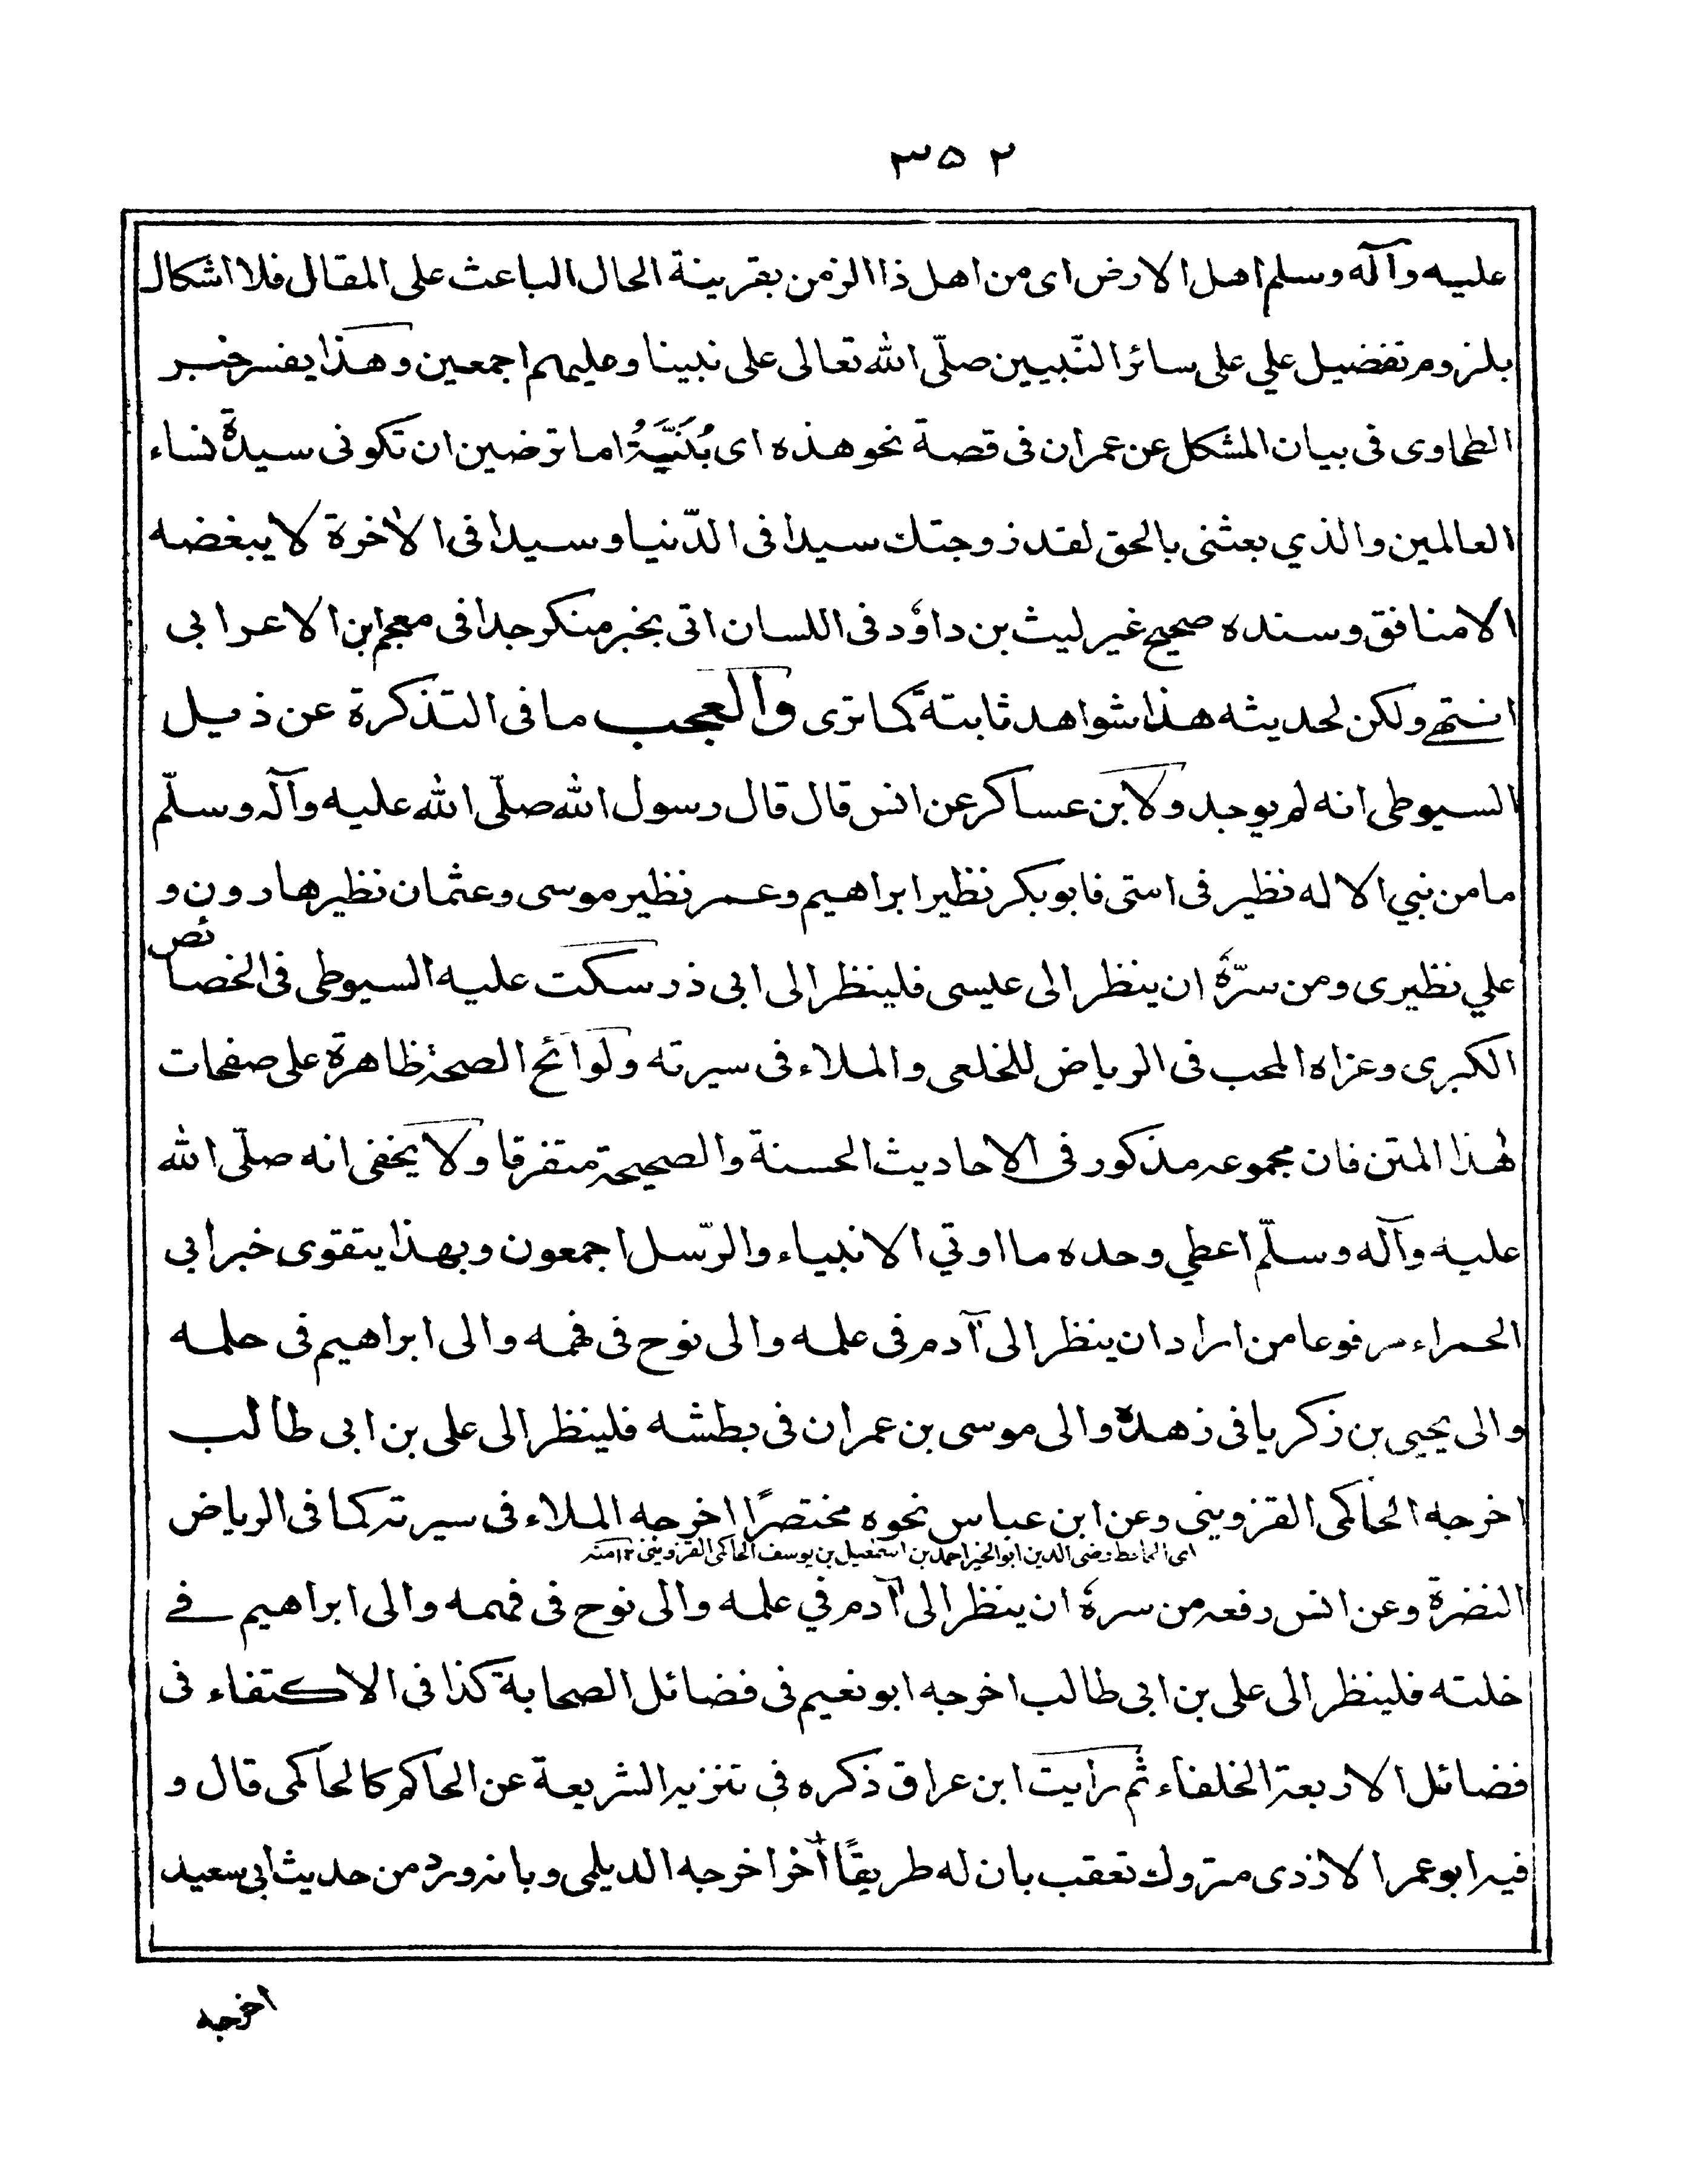 ٣٥٢
عليه وآله وسلم اهل الارض اى من اهل ذا الزمن بقرينة الحال الباعث على المقال فلا اشكال
بلزوم تفضيل علي على سائر النّبيين صلّى الله تعالى على نبينا وعليهم اجمعين وهذا يفسر خبر
الطحاوى فى بيان المشكل عن عمران فى قصة نحو هذه اى بُنَيَّةُ اما ترضين ان تكونى سيدة نساء
العالمين والذي بعثنى بالحق لقد زوجتك سيدا فى الدّنيا وسيدا فى الآخرة لا يبغضه
الا منافق وسنده صحيح غير ليث بن داؤد فى اللسان اتى بخبر منكر جدا فى معجم ابن الاعرابى
انتهى ولكن لحديثه هذا شواهد ثابتة كما ترى والعجب ما فى التذكرة عن ذيل
السيوطى انه لم يوجد ولابن عساكر عن انس قال قال رسول الله صلّى الله عليه وآله وسلّم
ما من نبي الا له نظير فى امتى فابوبكر نظير ابراهيم وعمر نظير موسى وعثمان نظير هارون و
علي نظيرى ومن سرّهٗ ان ينظر الى عيسى فلينظر الى ابى ذر سكت عليه السيوطى فى الخصائص
الكبرى وعزاه المحب فى الرياض للخلعى والملاء فى سيرته ولوائح الصحة ظاهرة على صفحات
هذا المتن فان مجموعه مذكور فى الاحاديث الحسنة والصحيحة متفرقا ولا يخفى انه صلّى الله
عليه وآله وسلّم اعطي وحده ما اوتي الانبياء والرّسل اجمعون وبهذا يتقوى خبر ابى
الحمراء مرفوعا من اراد ان ينظر الى آدم فى علمه والى نوح فى فهمه والى ابراهيم فى حلمه
والى يحيى بن زكريا فى زهده والى موسى بن عمران فى بطشه فلينظر الى على بن ابى طالب
اخرجه الحاكمى القزوينى وعن ابن عباس نحوه مختصرًا اخرجه الملاء فى سيرته كما فى الرياض
اى الحافظ رضى الدين ابوالخير احمد بن اسمعيل بن يوسف الحاكمى القزوينى ١٢ منه
النضرة وعن انس رفعه من سرهٗ ان ينظر الى آدم في علمه والى نوح فى فهمه والى ابراهيم فے
خلته فلينظر الى على بن ابى طالب اخرجه ابو نعيم فى فضائل الصحابة كذا فى الاكتفاء فى
فضائل الاربعة الخلفاء ثم رأيت ابن عراق ذكره فى تنزيه الشريعة عن الحاكم كالحاكمى قال و
فيه ابو عمر الازدى متروك تعقب بان له طريقًا آخر اخرجه الديلمى وبانه ورد من حديث ابى سعيد
اخرجه